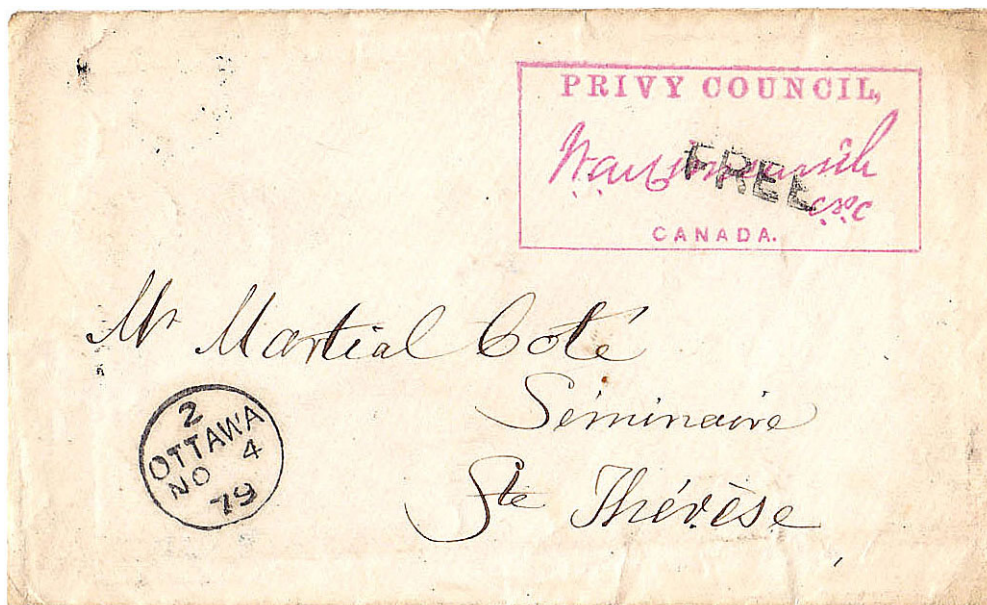 PRIVY COUNCIL,
FREE
c.p.c
CANADA.
Mr Martial Coté
Séminaire
Ste Thérèse
2
OTTAWA
NO 4
79